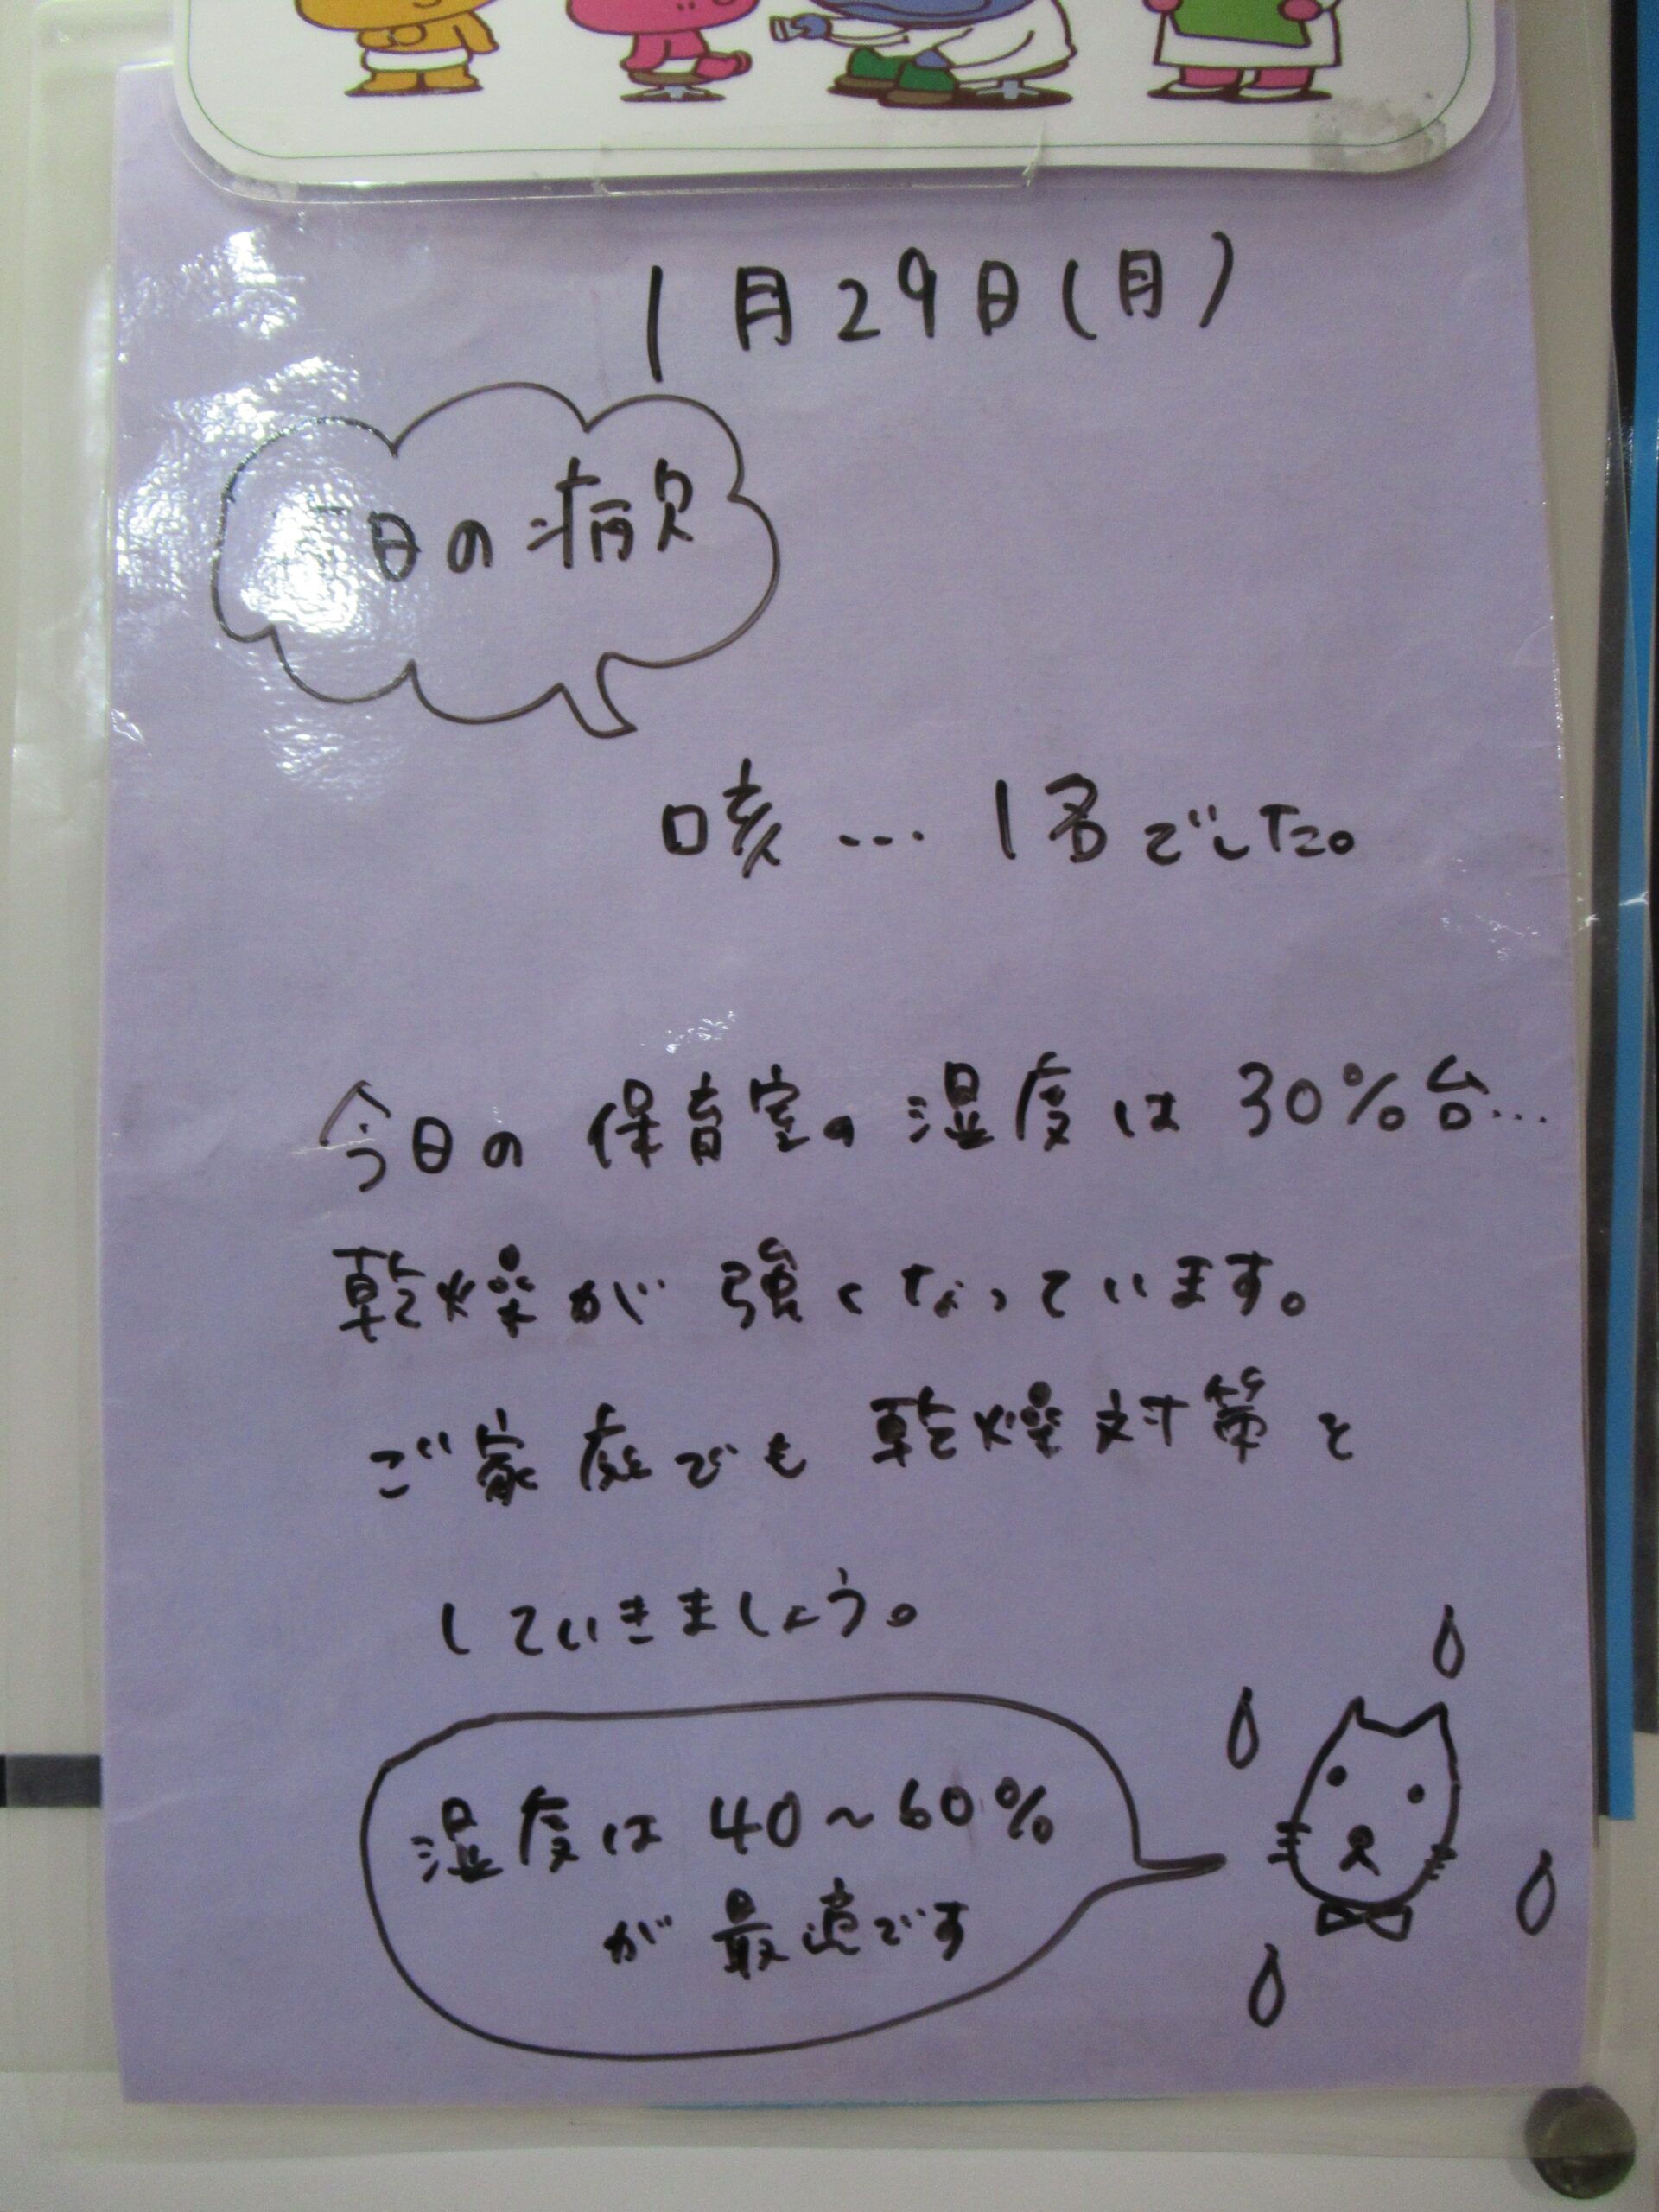 1月29日(月)
今日の病欠
咳…1名でした。
今日の保育室の湿度は30%台…
乾燥が強くなっています。
ご家庭でも乾燥対策を
していきましょう。
湿度は40~60%
が最適です